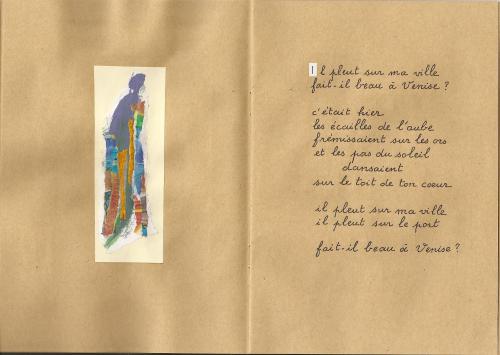 Il pleut sur ma ville
fait-il beau à Venise ?
c'était hier
les écailles de l'aube
frémissaient sur les ors
et les pas du soleil
dansaient
sur le toit de ton coeur
il pleut sur ma ville
il pleut sur le port
fait-il beau à Venise ?